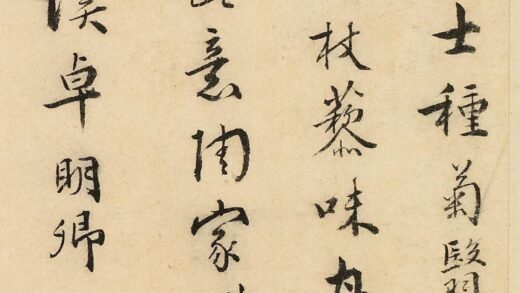 士種菊
杖藜味
意陶家
溪卓明卿